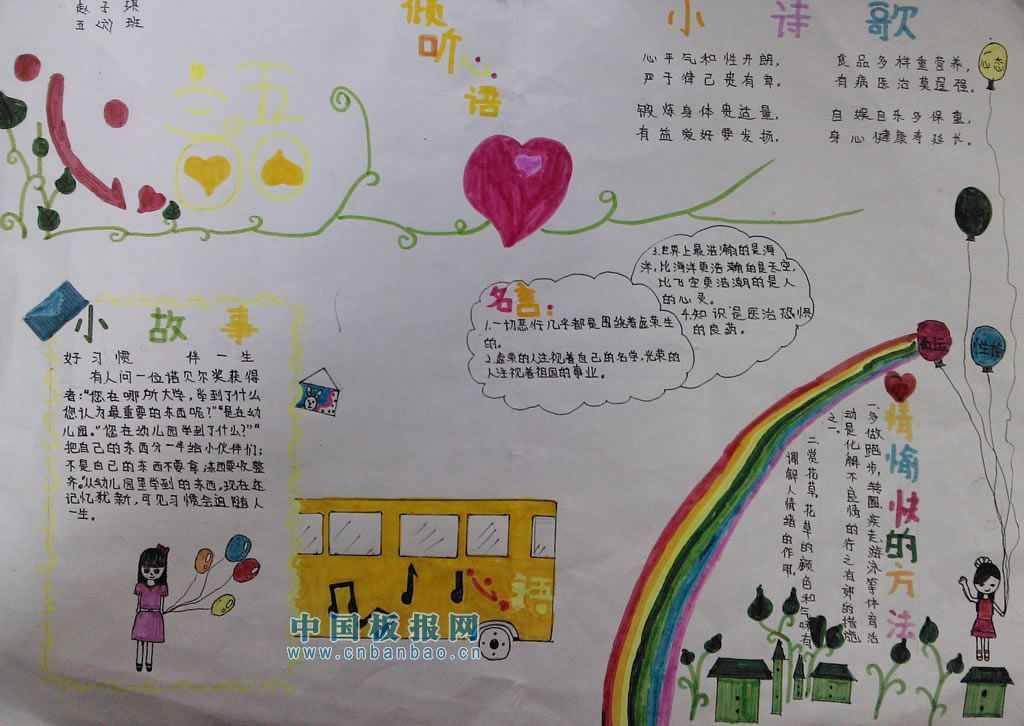 五(3)班
倾
听
心
语
小诗歌
心平气和性开朗，
严于律己贵有章，
锻炼身体贵适量，
有益爱好要发扬，
食品多样重营养，
有病医治莫逞强，
自娱自乐多保重，
身心健康寿延长。
心态
名言：
1.一切恶行几乎都是围绕着虚荣生
的。
2.虚荣的人注视着自己的名字，光荣的
人注视着祖国的事业。
3.世界上最浩瀚的是海
洋，比海洋更浩瀚的是天空，
比天空更浩瀚的是人
的心灵。
4.知识是医治恐惧
的良药。
小故事
好习惯 伴一生
有人问一位诺贝尔奖获得
者：“您在哪所大学，学到了什么
您认为最重要的东西呢？”“是在幼
儿园。”“您在幼儿园学到了什么？”“
把自己的东西分一半给小伙伴们；
不是自己的东西不要拿，东西要收整
齐。”从幼儿园里学到的东西，现在还
记忆犹新，可见习惯会追随人
一生。
性格
心情愉快的方法
一、多做跑步，转圈、疾走、游泳等体育活
动是化解不良情的行之有效的措施
之一。
二、赏花草，花草的颜色和气味有
调解人情绪的作用。
心语
中国板报网
www.cnbanbao.cn